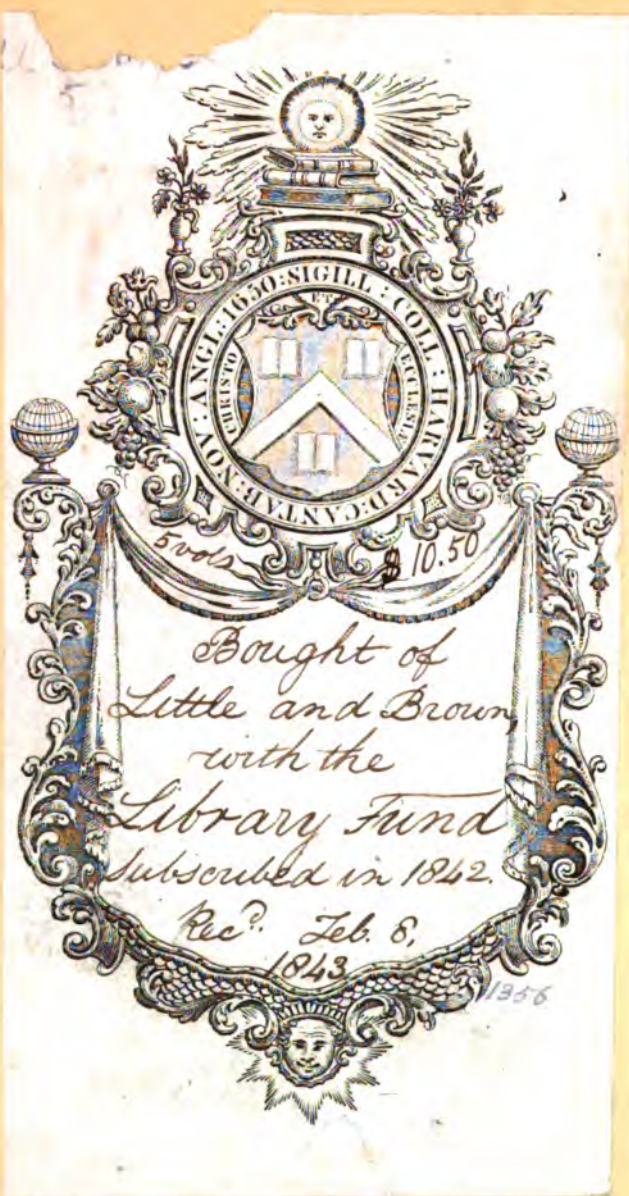 SIGILL : COLL : HARVARD : CANTAB : NOV : ANGL : 1650 :
CHRISTO ET ECCLESIÆ
5 vols $ 10.50
Bought of
Little and Brown,
with the
Library Fund
Subscribed in 1842.
Recd. Feb. 8,
1843
1356